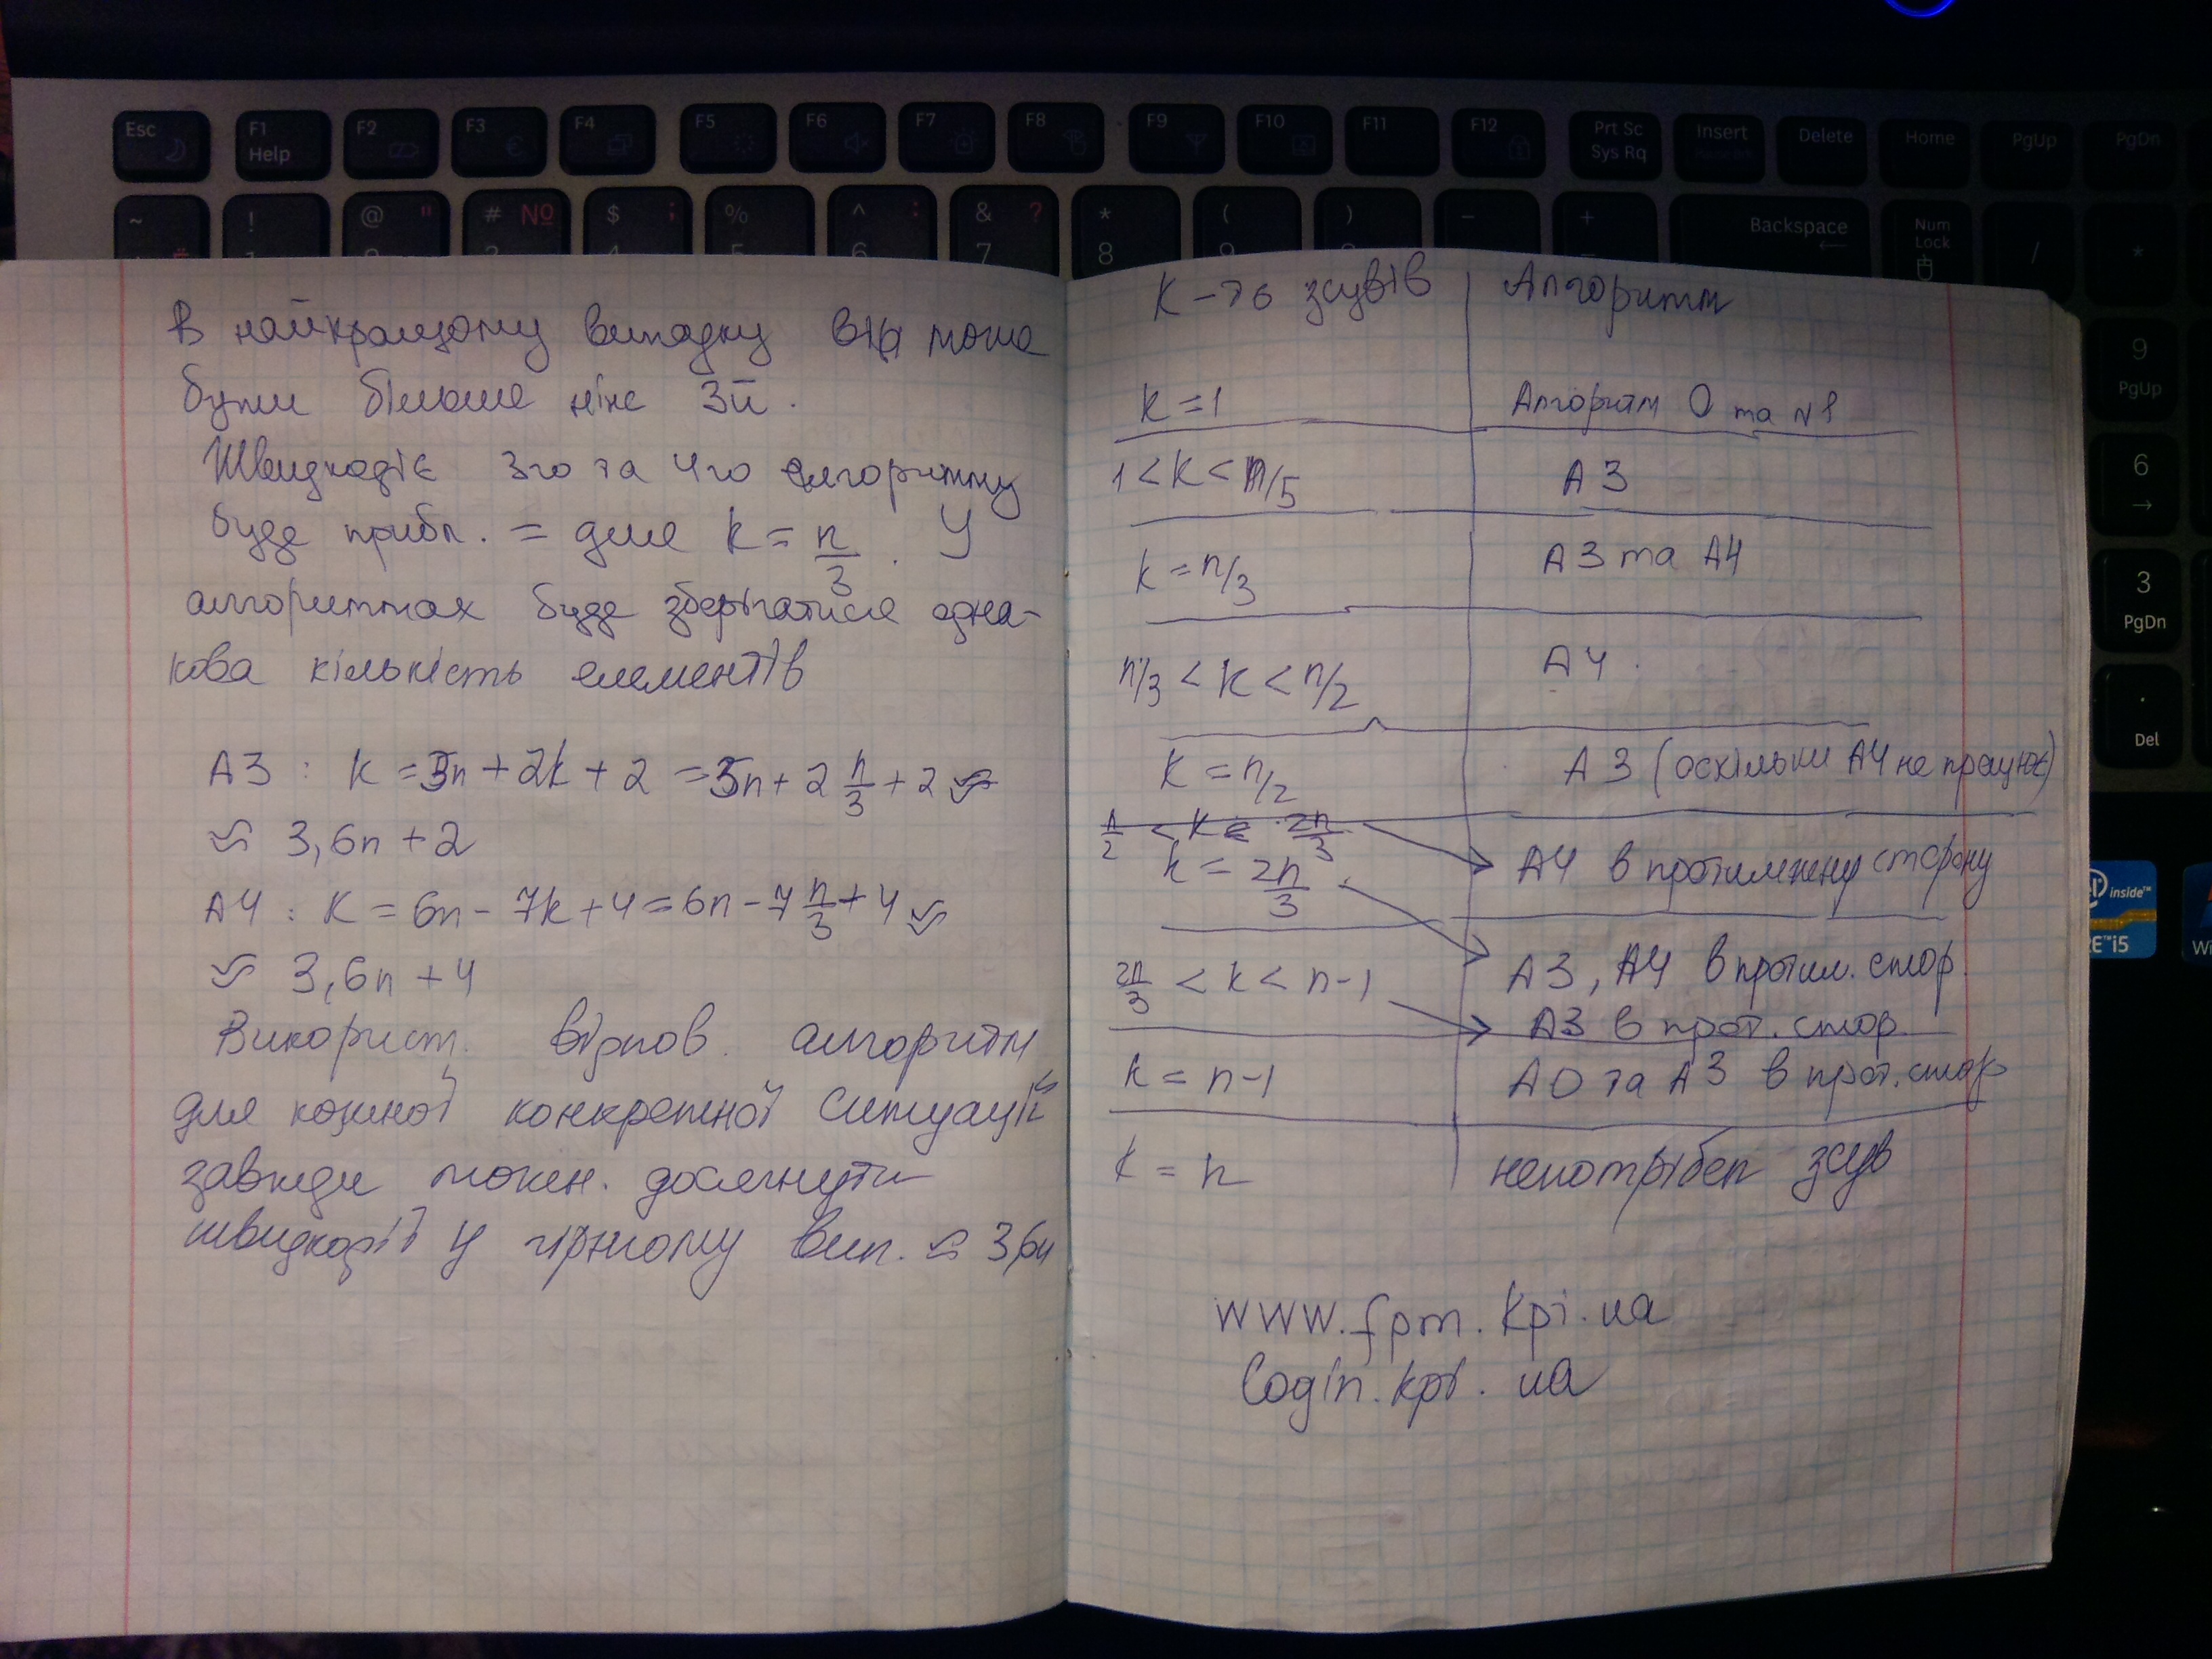 Esc
F1
Help
F2
F3
F4
F5
F6
F7
F8
F9
F10
F11
F12
Prt Sc
Sys Rq
Insert
Delete
Home
PgUp
PgDn
~
!
@ "
# №
$ ;
%
^ :
& ?
*
(
)
–
+
Backspace
←
Num
Lock
/
*
6
7
8
9
PgUp
6
→
3
PgDn
.
Del
inside™
i5
Wi
В найкращому випадку він може
бути більше ніж 3n.
Швидкодіє 3го та 4го алгоритму
буде прибл. = для k = n/3. У
алгоритмах буде зберігатися одна-
кова кількість елементів
А3 : K = 3n + 2k + 2 = 3n + 2 n/3 + 2 ≈
≈ 3,6n + 2
А4 : K = 6n - 7k + 4 = 6n - 7 n/3 + 4 ≈
≈ 3,6n + 4
Використ. відпов. алгоритм
для кожної конкретної ситуації
завжди можн. досягнути
швидкодії у гіршому вип. ≈ 3,6n
К-ть зсувів | Алгоритм
k = 1 | Алгоритм 0 та №1
1 < k < n/5 | А3
k = n/3 | А3 та А4
n/3 < k < n/2 | А4
k = n/2 | А3 (оскільки А4 не працює)
n/2 < k < 2n/3 → А4 в протилежну сторону
k = 2n/3 → А3, А4 в протил. стор.
2n/3 < k < n-1 → А3 в прот. стор.
k = n-1 | А0 та А3 в прот. стор
k = n | непотрібен зсув
www.fpm.kpi.ua
login.kpi.ua